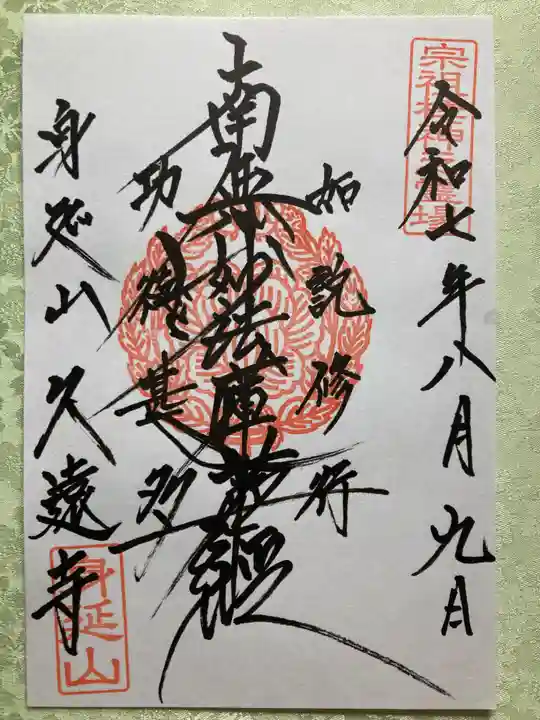 宗祖棲神之霊場
令和七年八月九日
如説修行
南無妙法蓮華経
功徳甚多
身延山久遠寺
身延山